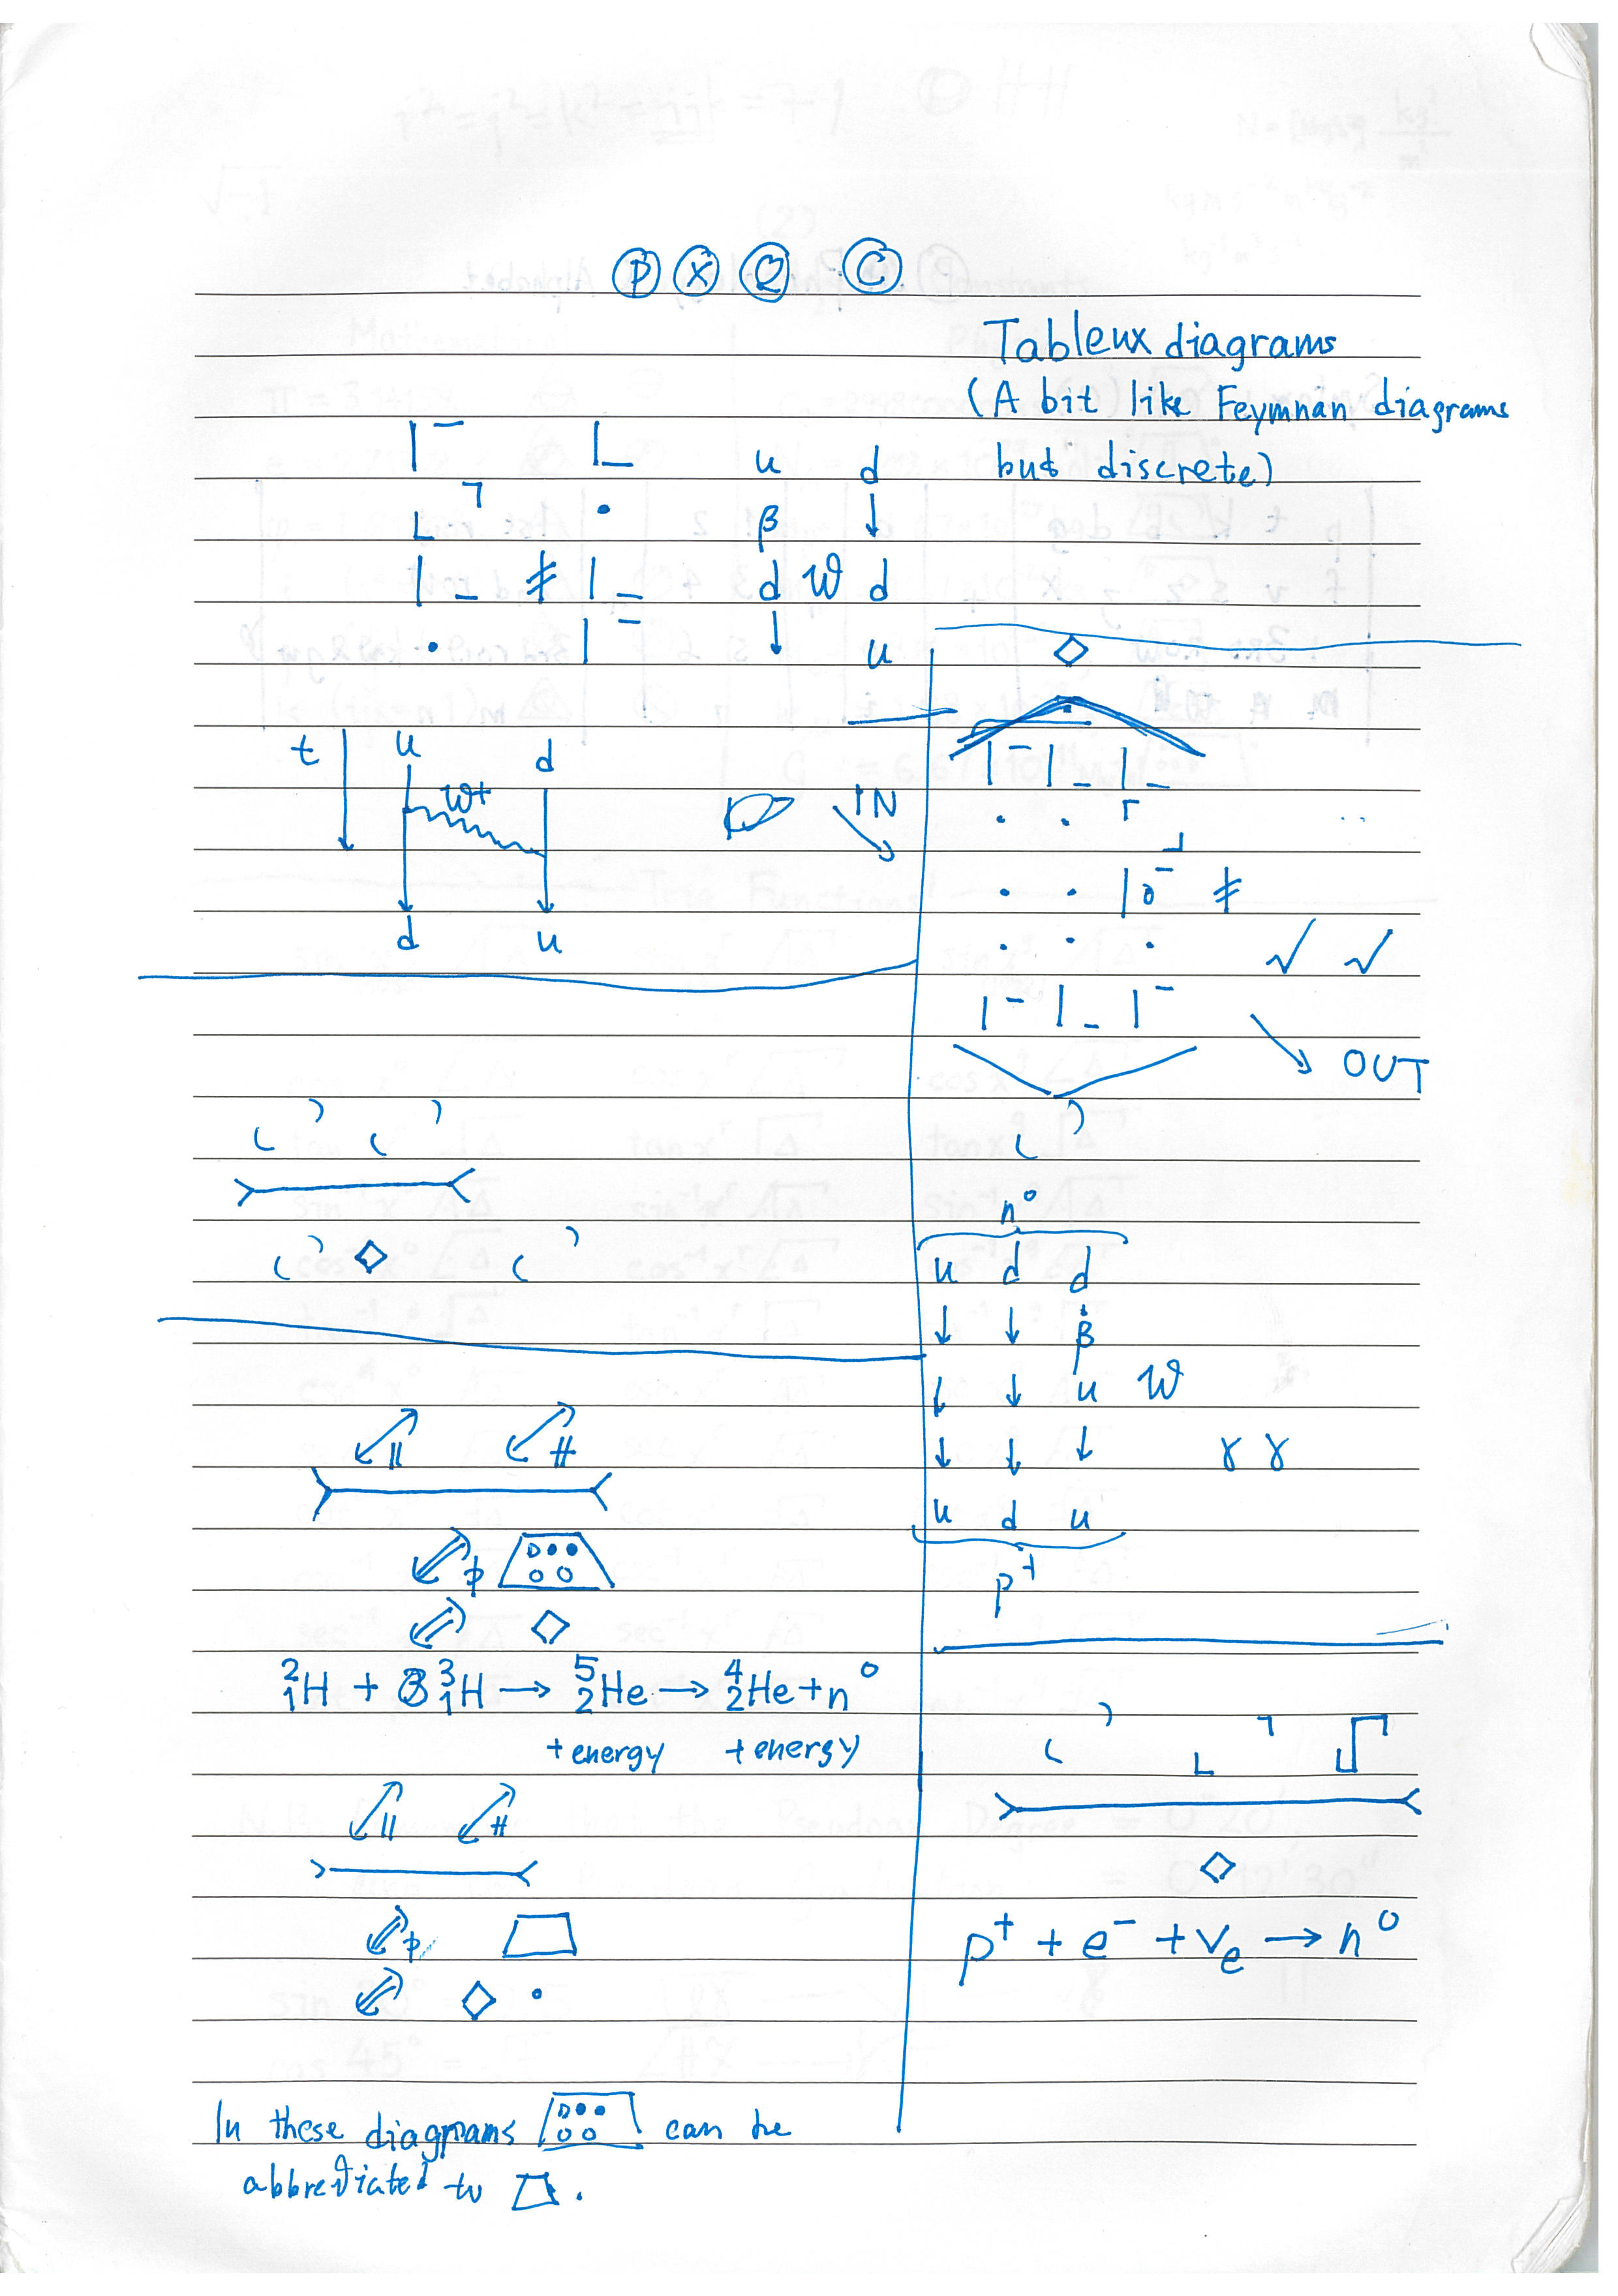 P X Q C
Tableux diagrams
(A bit like Feymnan diagrams
but discrete)
u d
β ↓
d W d
↓ u
t u d
W+
d u
IN
OUT
n⁰
u d d
↓ ↓ β
↓ ↓ u W
↓ ↓ ↓ γ γ
u d u
p⁺
²₁H + ³₁H → ⁵₂He → ⁴₂He + n⁰
+ energy + energy
p⁺ + e⁻ + νₑ → n⁰
In these diagrams can be
abbreviated to .